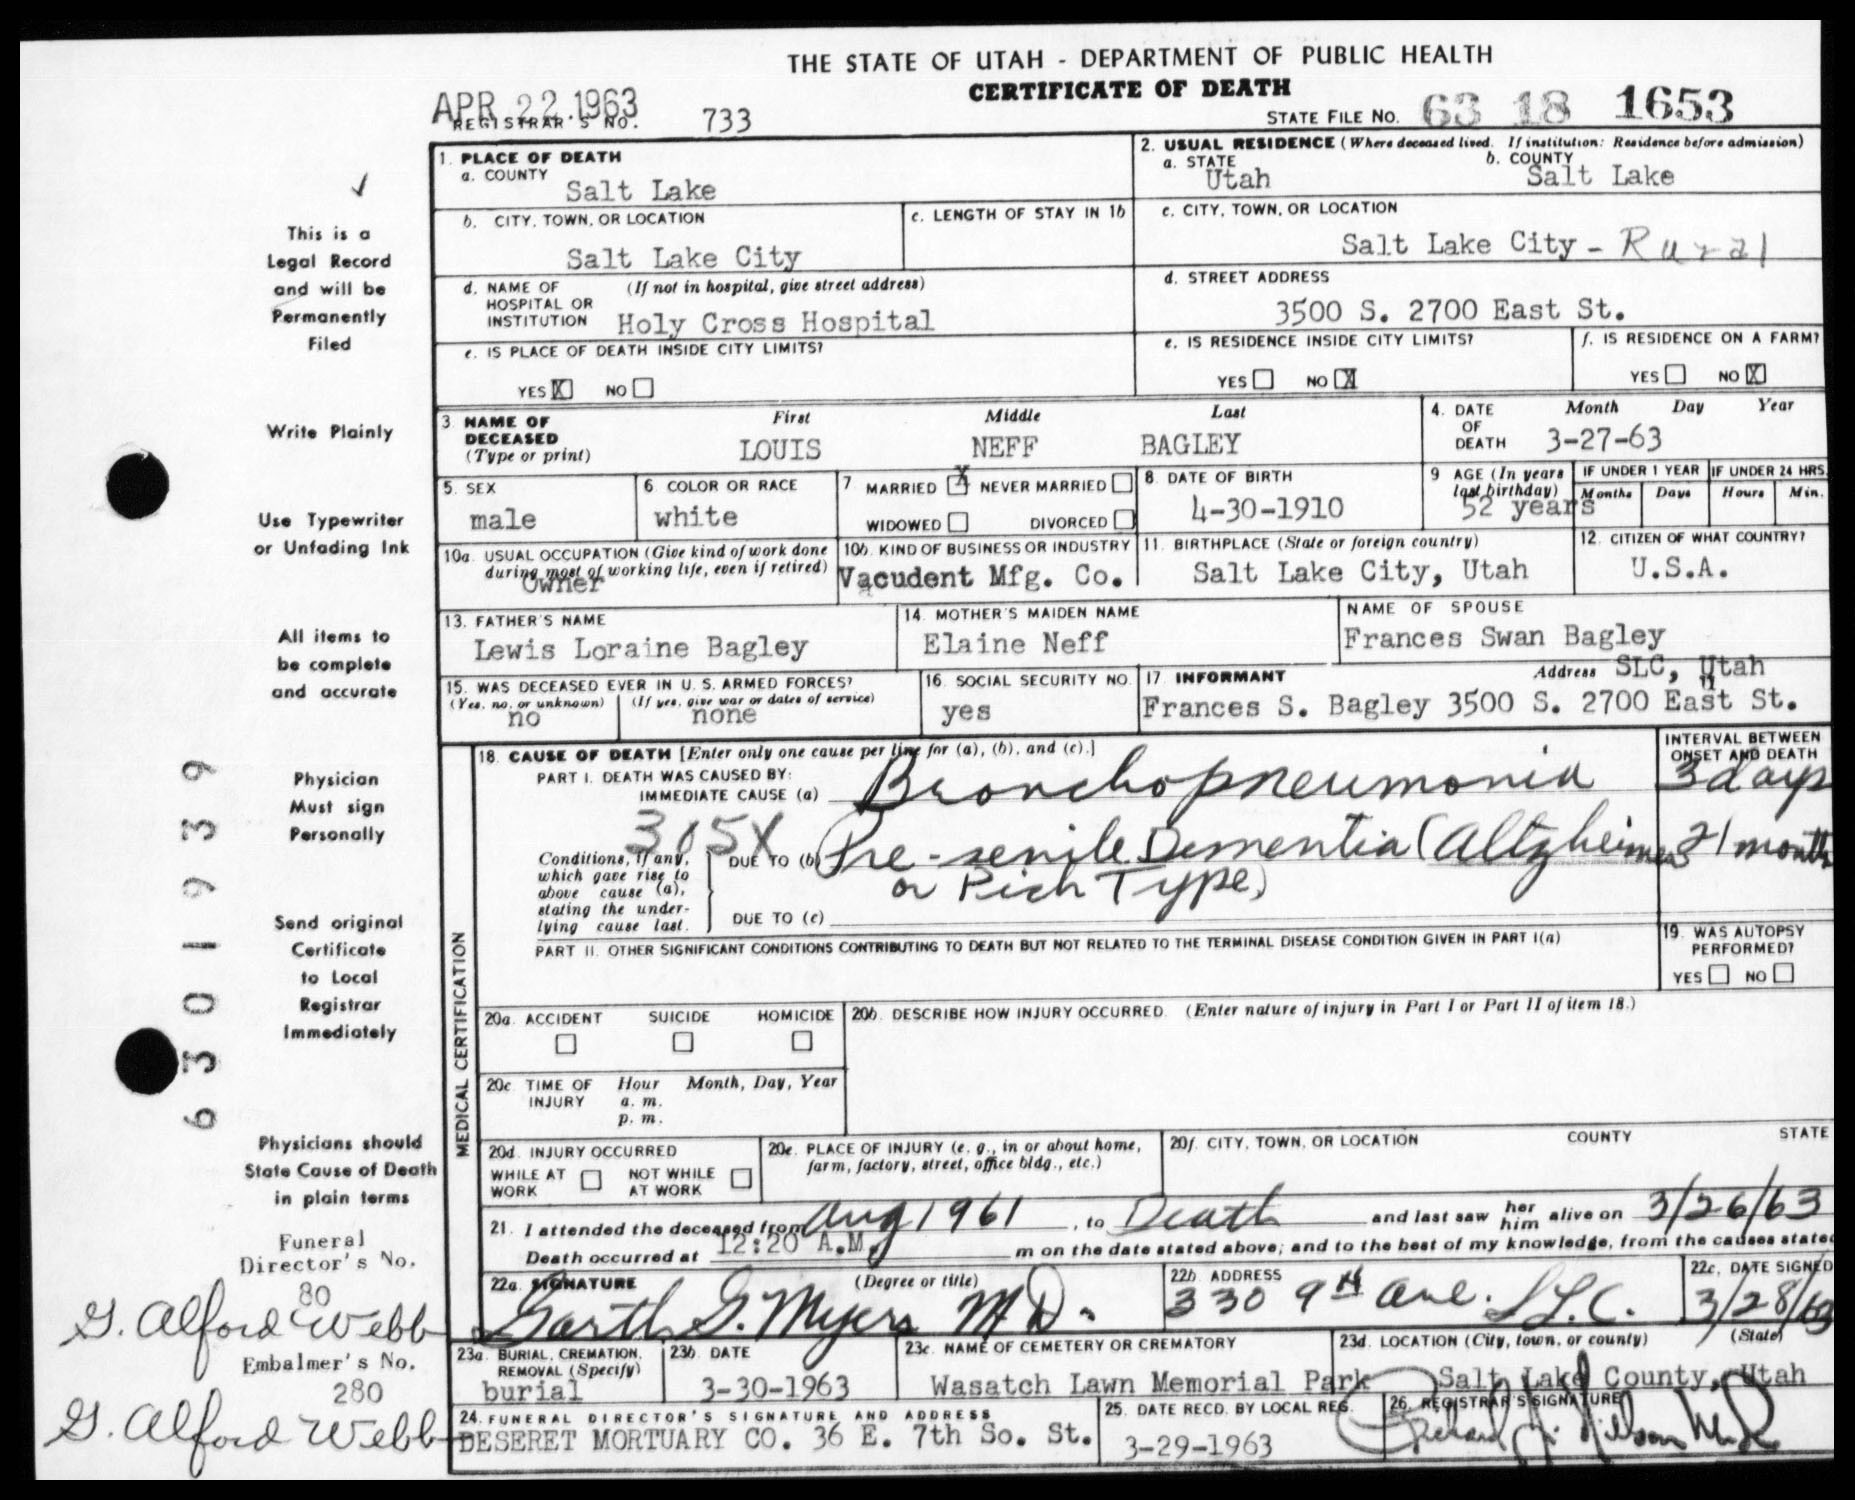 THE STATE OF UTAH - DEPARTMENT OF PUBLIC HEALTH
CERTIFICATE OF DEATH
APR 22 1963
REGISTRAR'S NO. 733
STATE FILE NO. 63 18 1653
1. PLACE OF DEATH
a. COUNTY
Salt Lake
2. USUAL RESIDENCE (Where deceased lived. If institution: Residence before admission)
a. STATE b. COUNTY
Utah Salt Lake
b. CITY, TOWN, OR LOCATION
Salt Lake City
c. LENGTH OF STAY IN 1b
c. CITY, TOWN, OR LOCATION
Salt Lake City - Rural
d. NAME OF HOSPITAL OR INSTITUTION (If not in hospital, give street address)
Holy Cross Hospital
d. STREET ADDRESS
3500 S. 2700 East St.
e. IS PLACE OF DEATH INSIDE CITY LIMITS?
YES X NO
e. IS RESIDENCE INSIDE CITY LIMITS?
YES NO X
f. IS RESIDENCE ON A FARM?
YES NO X
3 NAME OF DECEASED (Type or print)
First Middle Last
LOUIS NEFF BAGLEY
4. DATE OF DEATH
Month Day Year
3-27-63
5. SEX
male
6. COLOR OR RACE
white
7 MARRIED X NEVER MARRIED
WIDOWED DIVORCED
8. DATE OF BIRTH
4-30-1910
9 AGE (In years last birthday)
52 years
IF UNDER 1 YEAR IF UNDER 24 HRS.
Months Days Hours Min.
10a. USUAL OCCUPATION (Give kind of work done during most of working life, even if retired)
Owner
10b. KIND OF BUSINESS OR INDUSTRY
Vacudent Mfg. Co.
11. BIRTHPLACE (State or foreign country)
Salt Lake City, Utah
12. CITIZEN OF WHAT COUNTRY?
U.S.A.
13. FATHER'S NAME
Lewis Loraine Bagley
14. MOTHER'S MAIDEN NAME
Elaine Neff
NAME OF SPOUSE
Frances Swan Bagley
15. WAS DECEASED EVER IN U. S. ARMED FORCES?
(Yes, no, or unknown) (If yes, give war or dates of service)
no none
16. SOCIAL SECURITY NO.
yes
17 INFORMANT Address SLC, Utah
Frances S. Bagley 3500 S. 2700 East St.
MEDICAL CERTIFICATION
18. CAUSE OF DEATH [Enter only one cause per line for (a), (b), and (c).]
PART I. DEATH WAS CAUSED BY:
IMMEDIATE CAUSE (a) Bronchopneumonia
INTERVAL BETWEEN ONSET AND DEATH
3 days
305X
Conditions, if any, which gave rise to above cause (a), stating the underlying cause last.
DUE TO (b) Pre-senile Dementia (Altzheimers 21 months
or Pich Type)
DUE TO (c)
PART II. OTHER SIGNIFICANT CONDITIONS CONTRIBUTING TO DEATH BUT NOT RELATED TO THE TERMINAL DISEASE CONDITION GIVEN IN PART I(a)
19. WAS AUTOPSY PERFORMED?
YES NO
20a. ACCIDENT SUICIDE HOMICIDE
20b. DESCRIBE HOW INJURY OCCURRED. (Enter nature of injury in Part I or Part II of item 18.)
20c. TIME OF INJURY Hour Month, Day, Year
a. m.
p. m.
20d. INJURY OCCURRED
WHILE AT WORK NOT WHILE AT WORK
20e. PLACE OF INJURY (e. g., in or about home, farm, factory, street, office bldg., etc.)
20f. CITY, TOWN, OR LOCATION COUNTY STATE
21. I attended the deceased from Aug 1961, to Death and last saw her him alive on 3/26/63
Death occurred at 12:20 A.M. m on the date stated above; and to the best of my knowledge, from the causes stated
22a. SIGNATURE (Degree or title)
Garth G. Myers M.D.
22b. ADDRESS
330 9th Ave. S.L.C.
22c. DATE SIGNED
3/28/63
23a. BURIAL, CREMATION, REMOVAL (Specify)
burial
23b. DATE
3-30-1963
23c. NAME OF CEMETERY OR CREMATORY
Wasatch Lawn Memorial Park
23d. LOCATION (City, town, or county) (State)
Salt Lake County, Utah
24. FUNERAL DIRECTOR'S SIGNATURE AND ADDRESS
DESERET MORTUARY CO. 36 E. 7th So. St.
25. DATE RECD. BY LOCAL REG.
3-29-1963
26. REGISTRAR'S SIGNATURE
This is a
Legal Record
and will be
Permanently
Filed
Write Plainly
Use Typewriter
or Unfading Ink
All items to
be complete
and accurate
Physician
Must sign
Personally
Send original
Certificate
to Local
Registrar
Immediately
Physicians should
State Cause of Death
in plain terms
Funeral
Director's No.
80
G. Alford Webb
Embalmer's No.
280
G. Alford Webb
6301939